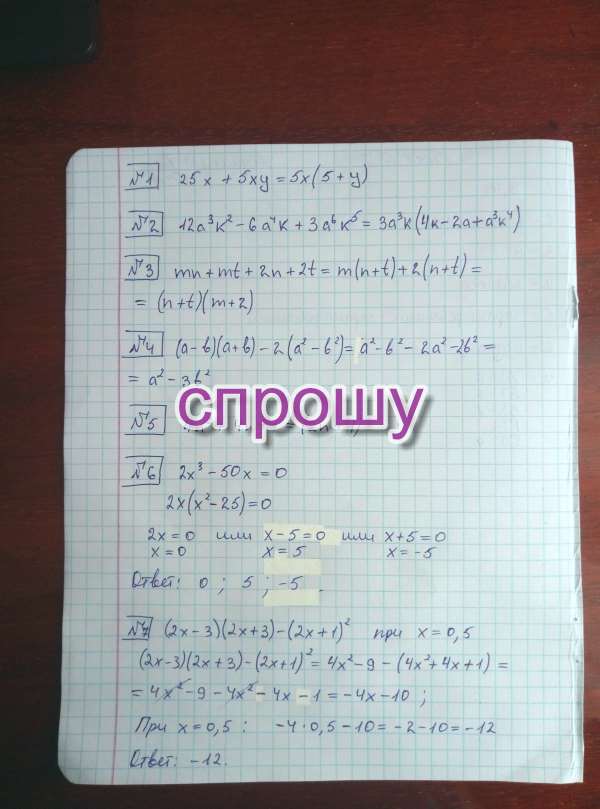 №1 25x + 5xy = 5x(5 + y)
№2 12a³k² - 6a⁴k + 3a⁶k⁵ = 3a³k(4k - 2a + a³k⁴)
№3 mn + mt + 2n + 2t = m(n+t) + 2(n+t) =
= (n+t)(m+2)
№4 (a-b)(a+b) - 2(a² - b²) = a² - b² - 2a² - 2b² =
= a² - 3b²
спрошу
№5
№6 2x³ - 50x = 0
2x(x² - 25) = 0
2x = 0 или x - 5 = 0 или x + 5 = 0
x = 0 x = 5 x = -5
Ответ: 0 ; 5 ; -5 .
№7 (2x - 3)(2x + 3) - (2x + 1)² при x = 0,5
(2x-3)(2x+3) - (2x+1)² = 4x² - 9 - (4x² + 4x + 1) =
= 4x² - 9 - 4x² - 4x - 1 = -4x - 10 ;
При x = 0,5 : -4 · 0,5 - 10 = -2 - 10 = -12
Ответ: -12.